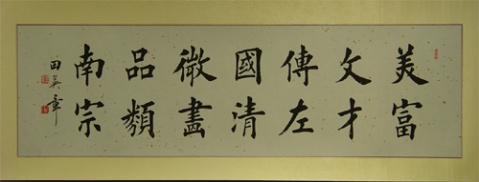 美富
文才
傳左
國清
微畫
品類
南宗
田英章